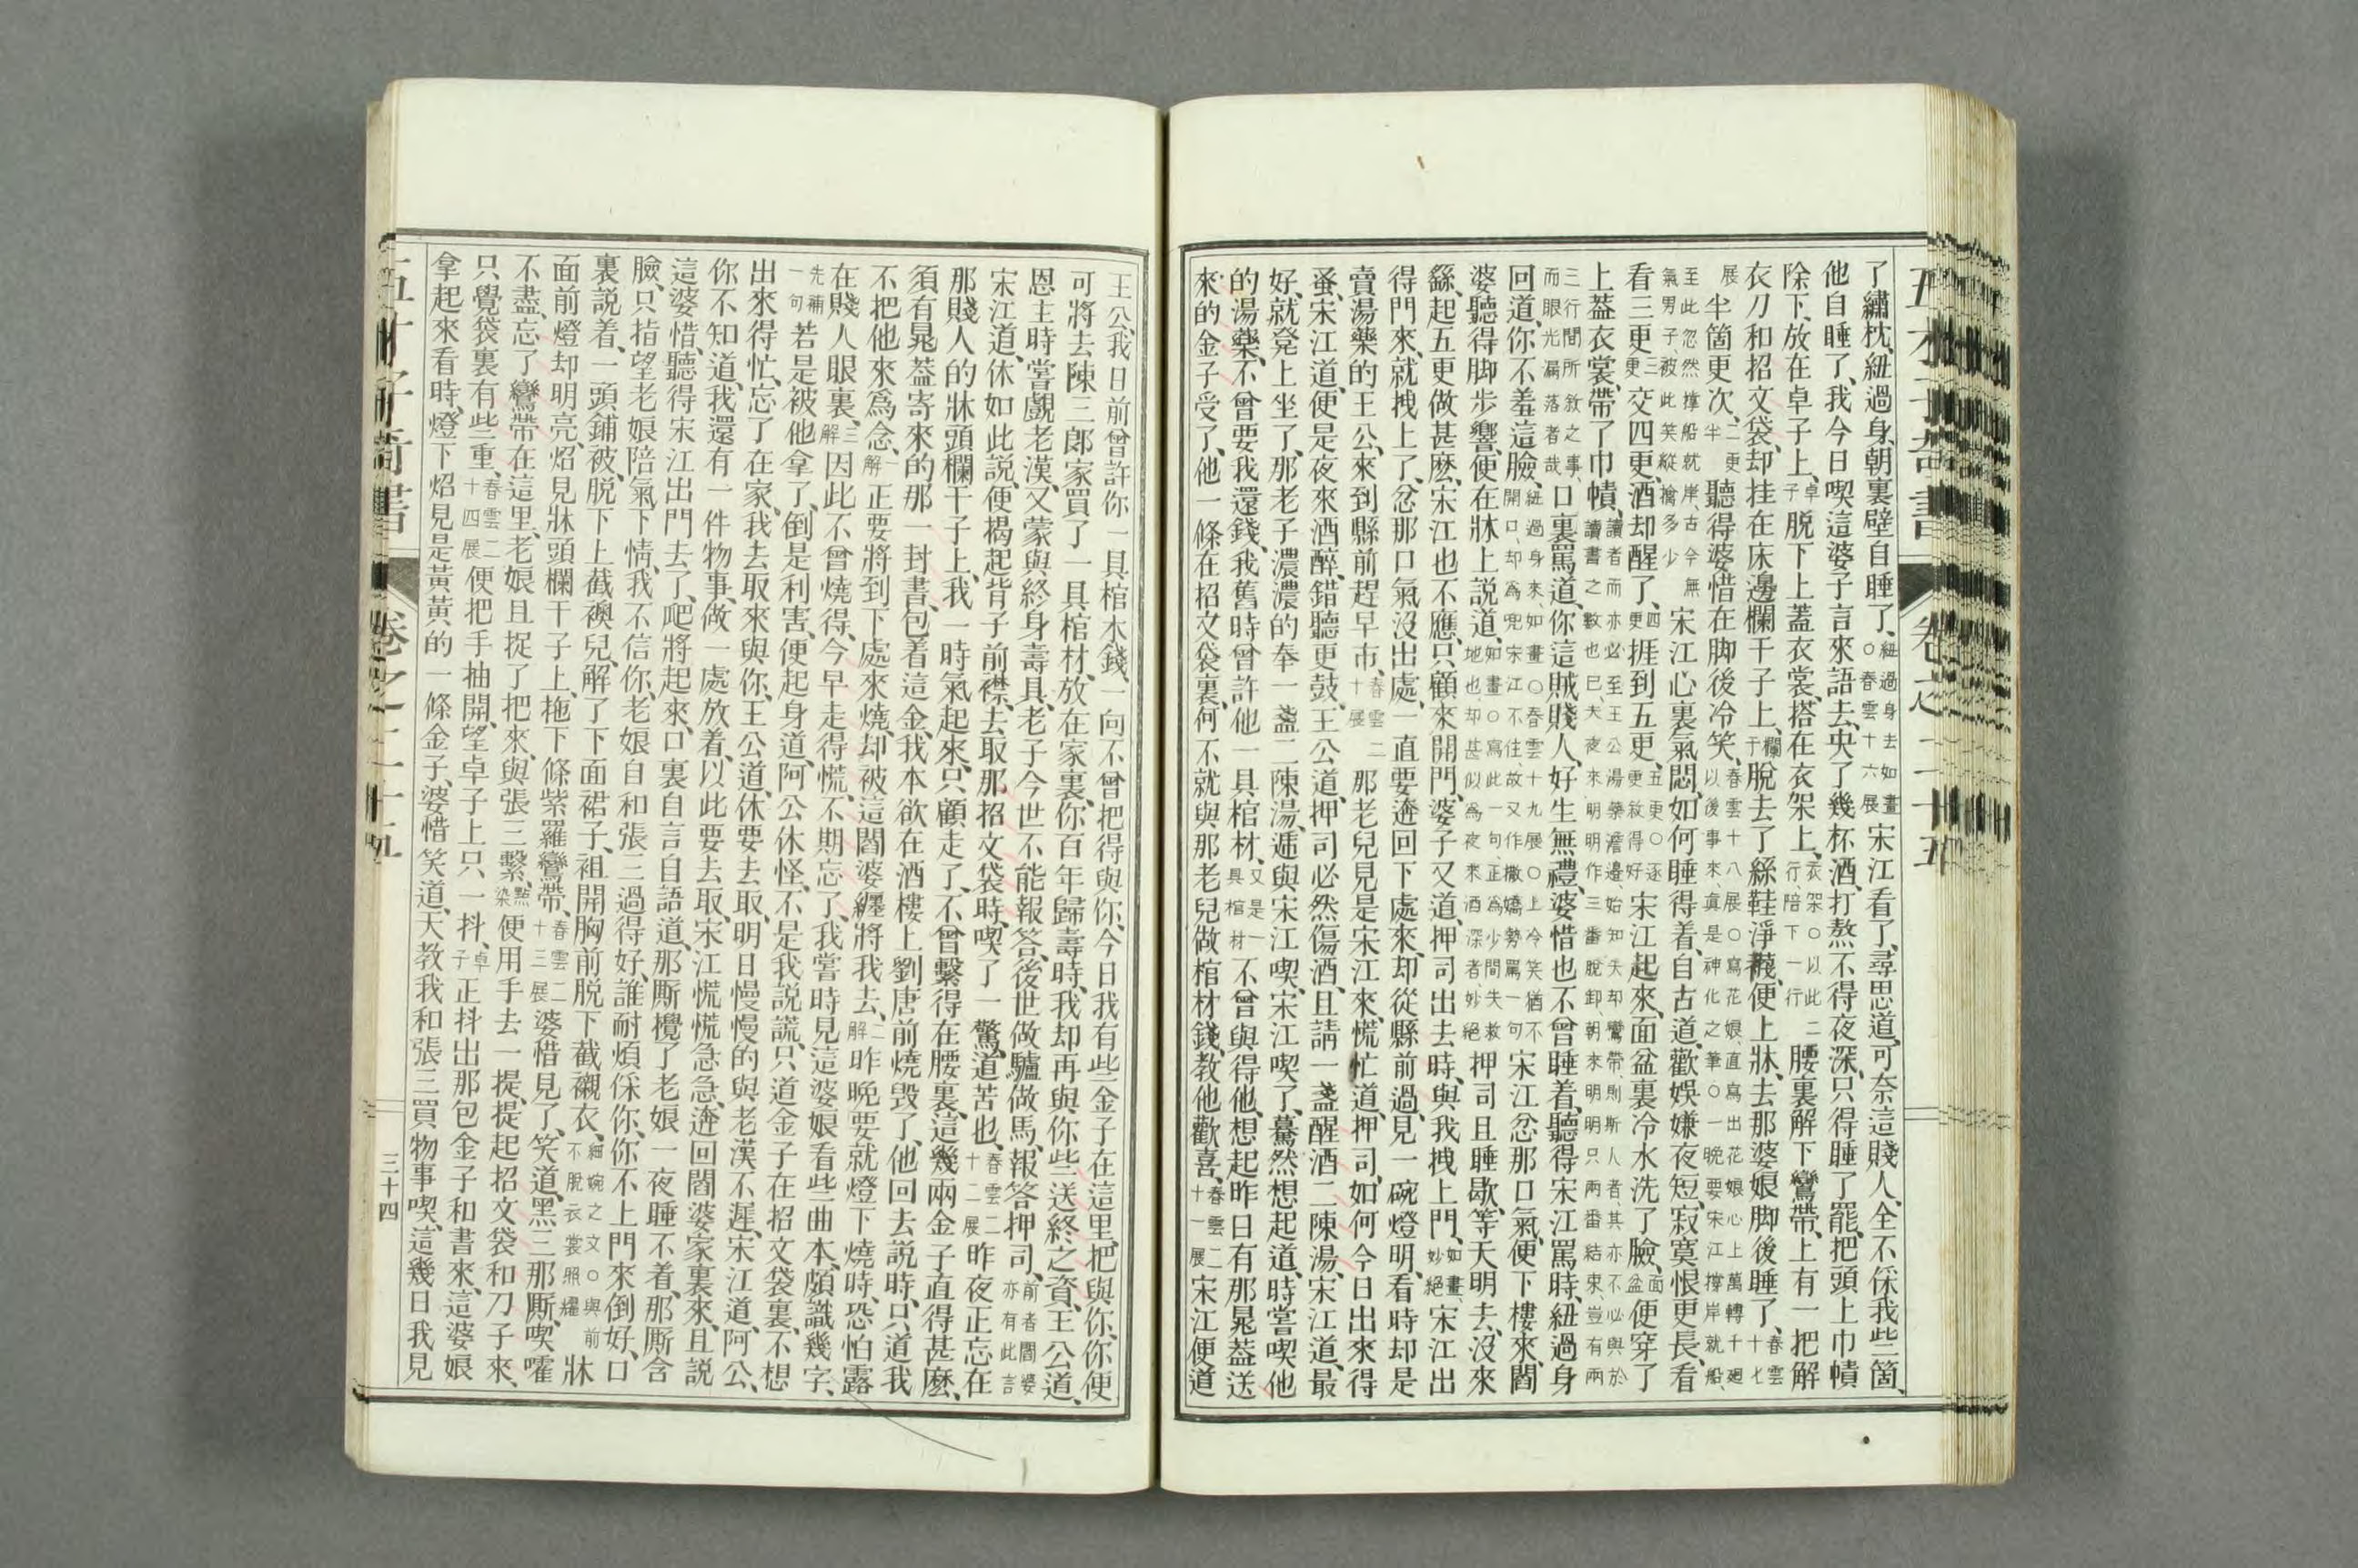 了繡枕、紐過身、朝裏壁自睡了、紐過身去如畫○春雲十六展宋江看了、尋思道、可奈這賤人、全不倸我些箇、
他自睡了、我今日喫這婆子言來語去、央了幾杯酒、打熬不得夜深、只得睡了罷、把頭上巾幘
除下、放在卓子上、卓子脫下上蓋衣裳、搭在衣架上、衣架○以此二行、陪下一行腰裏解下鸞帶、上有一把解
衣刀和招文袋、却挂在床邊欄干子上、欄干脫去了絲鞋淨襪、便上牀、去那婆娘脚後睡了、春雲十七
展半箇更次、二更半聽得婆惜在脚後冷笑、春雲十八展○寫花娘、直寫出花娘心上萬轉千廻以後事來、真是神化之筆○一晚要宋江撐岸就船、
至此忽然撐船就岸、古今無氣男子、被此笑縱擒多少宋江心裏氣悶、如何睡得着、自古道、歡娛嫌夜短、寂寞恨更長、看
看三更三更交四更、酒却醒了、四更捱到五更、五更○逐更敘得好宋江起來、面盆裏冷水洗了臉、面盆便穿了
上蓋衣裳、帶了巾幘、讀者而亦必至王公湯藥濟邊、始知失却鸞帶、則斯人者、其亦不必與於讀書之數也已、夫夜來明明作三番脫卸、朝來明明只兩番結束、豈有兩
三行間所敘之事、而眼光漏落者哉口裏罵道、你這賊賤人、好生無禮、婆惜也不曾睡着、聽得宋江罵時、紐過身
回道、你不羞這臉、紐過身來、如畫○春雲十九展○上冷笑猶不開口、却爲兜宋江不住、故又作撒嬌勢罵一句宋江忿那口氣、便下樓來、閻
婆聽得脚步響、便在牀上說道、如畫○寫此一句、正爲少間失救地也、却甚似爲夜來酒深者、妙絕押司且睡歇、等天明去、沒來
繇、起五更做甚麽、宋江也不應、只顧來開門、婆子又道、押司出去時、與我拽上門、如畫、妙絕宋江出
得門來、就拽上了、忿那口氣沒出處、一直要迯回下處來、却從縣前過、見一碗燈明、看時却是
賣湯藥的王公、來到縣前趕早市、春雲二十展那老兒見是宋江來、慌忙道、押司、如何今日出來得
蚤、宋江道、便是夜來酒醉、錯聽更鼓、王公道、押司必然傷酒、且請一盞醒酒二陳湯、宋江道、最
好、就凳上坐了、那老子濃濃的奉一盞二陳湯、遞與宋江喫、宋江喫了、驀然想起道、時嘗喫他
的湯藥、不曾要我還錢、我舊時曾許他一具棺材、又是一具棺材不曾與得他、想起昨日有那晁蓋送
來的金子、受了他一條在招文袋裏、何不就與那老兒做棺材錢、教他歡喜、春雲二十一展宋江便道
王公、我日前曾許你一具棺木錢、一向不曾把得與你、今日我有些金子在這里、把與你、你便
可將去陳三郎家買了一具棺材、放在家裏、你百年歸壽時、我却再與你些送終之資、王公道、
恩主時嘗覷老漢、又蒙與終身壽具、老子今世不能報荅、後世做驢做馬、報荅押司、前者閻婆亦有此言
宋江道、休如此說、便揭起背子前襟、去取那招文袋時、喫了一驚、道苦也、春雲二十二展昨夜正忘在
那賤人的牀頭欄干子上、我一時氣起來、只顧走了、不曾繫得在腰裏、這幾兩金子直得甚麽、
須有晁蓋寄來的那一封書、包着這金、我本欲在酒樓上劉唐前燒毀了、他回去說時、只道我
不把他來爲念、一解正要將到下處來燒、却被這閻婆纏將我去、二解昨晚要就燈下燒時、恐怕露
在賤人眼裏、三解因此不曾燒得、今早走得慌、不期忘了、我嘗時見這婆娘看些曲本、頗識幾字、
先補一句若是被他拿了、倒是利害、便起身道、阿公休怪、不是我說謊、只道金子在招文袋裏、不想
出來得忙、忘了在家、我去取來與你、王公道、休要去取、明日慢慢的與老漢不遲、宋江道、阿公、
你不知道、我還有一件物事、做一處放着、以此要去取、宋江慌慌急急、迯回閻婆家裏來、且說
這婆惜、聽得宋江出門去了、爬將起來、口裏自言自語道、那厮攪了老娘一夜睡不着、那厮含
臉、只指望老娘陪氣下情、我不信你、老娘自和張三過得好、誰耐煩倸你、你不上門來倒好、口
裏說着、一頭鋪被、脫下上截襖兒、解了下面裙子、袒開胸前、脫下截襯衣、細婉之文○與前不脫衣裳照耀牀
面前燈却明亮、炤見牀頭欄干子上、拖下條紫羅鸞帶、春雲二十三展婆惜見了、笑道、黑三那厮、喫嚯
不盡、忘了鸞帶在這里、老娘且捉了把來、與張三繫、點染便用手去一提、提起招文袋和刀子來、
只覺袋裏有些重、春雲二十四展便把手抽開、望卓子上只一抖、卓子正抖出那包金子和書來、這婆娘
拿起來看時、燈下炤見是黃黃的一條金子、婆惜笑道、天教我和張三買物事喫、這幾日我見
三十四
五才子奇書 卷之二十五